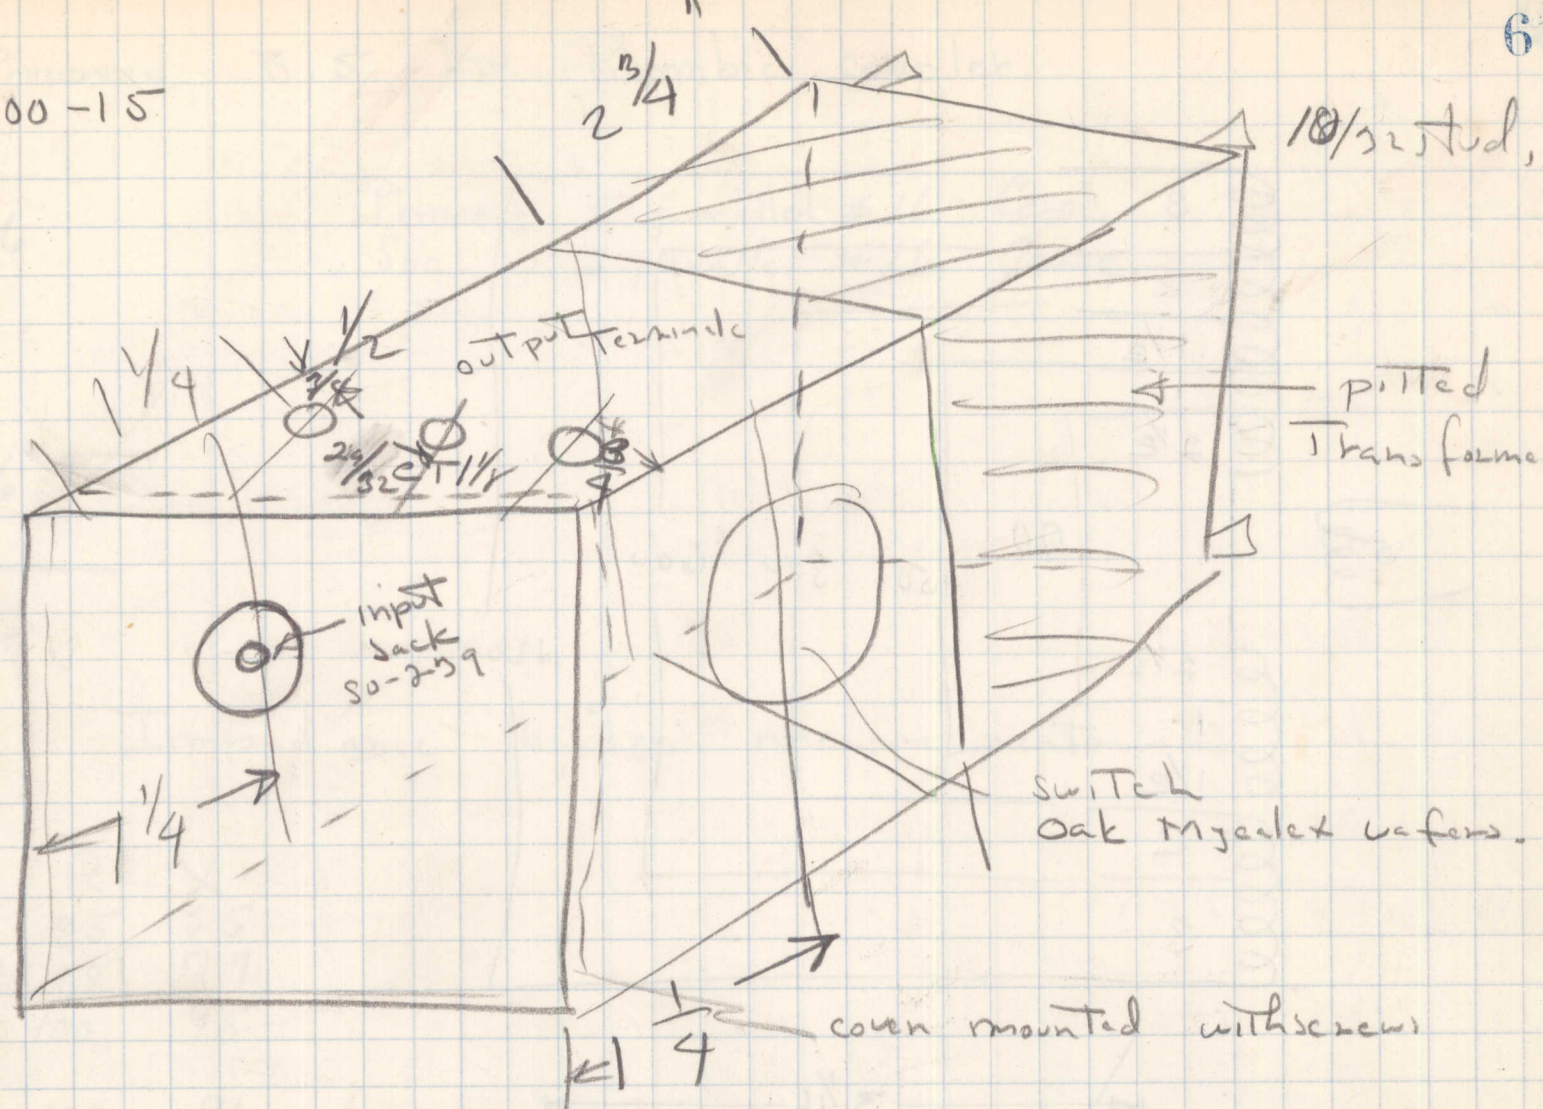 6
00-15
2 3/4
10/32 stud,
1/2
1 1/4
output terminals
3/8
29/32
3/4
pitted
Transforme
input
Jack
SO-239
1 1/4
switch
Oak Mycalex wafers.
1 1/4
cover mounted with screws